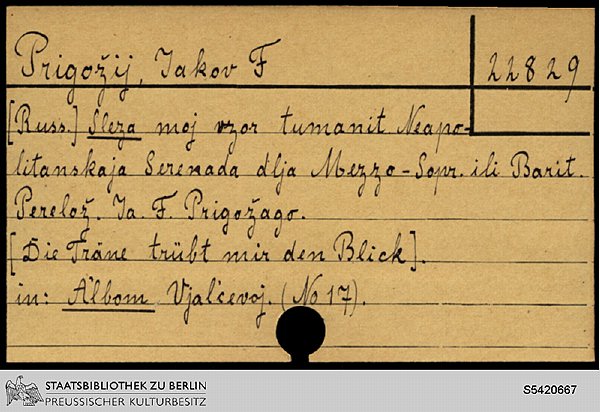 Prigožij, Jakov F
22829
[Russ.] Sleza moj vzor tumanit Neapo-
litanskaja Serenada dlja Mezzo-Sopr. ili Barit.
Perelož. Ja. F. Prigožago.
[Die Träne trübt mir den Blick].
in: Al'bom Vjal'cevoj. (No 17).
STAATSBIBLIOTHEK ZU BERLIN
PREUSSISCHER KULTURBESITZ
S5420667